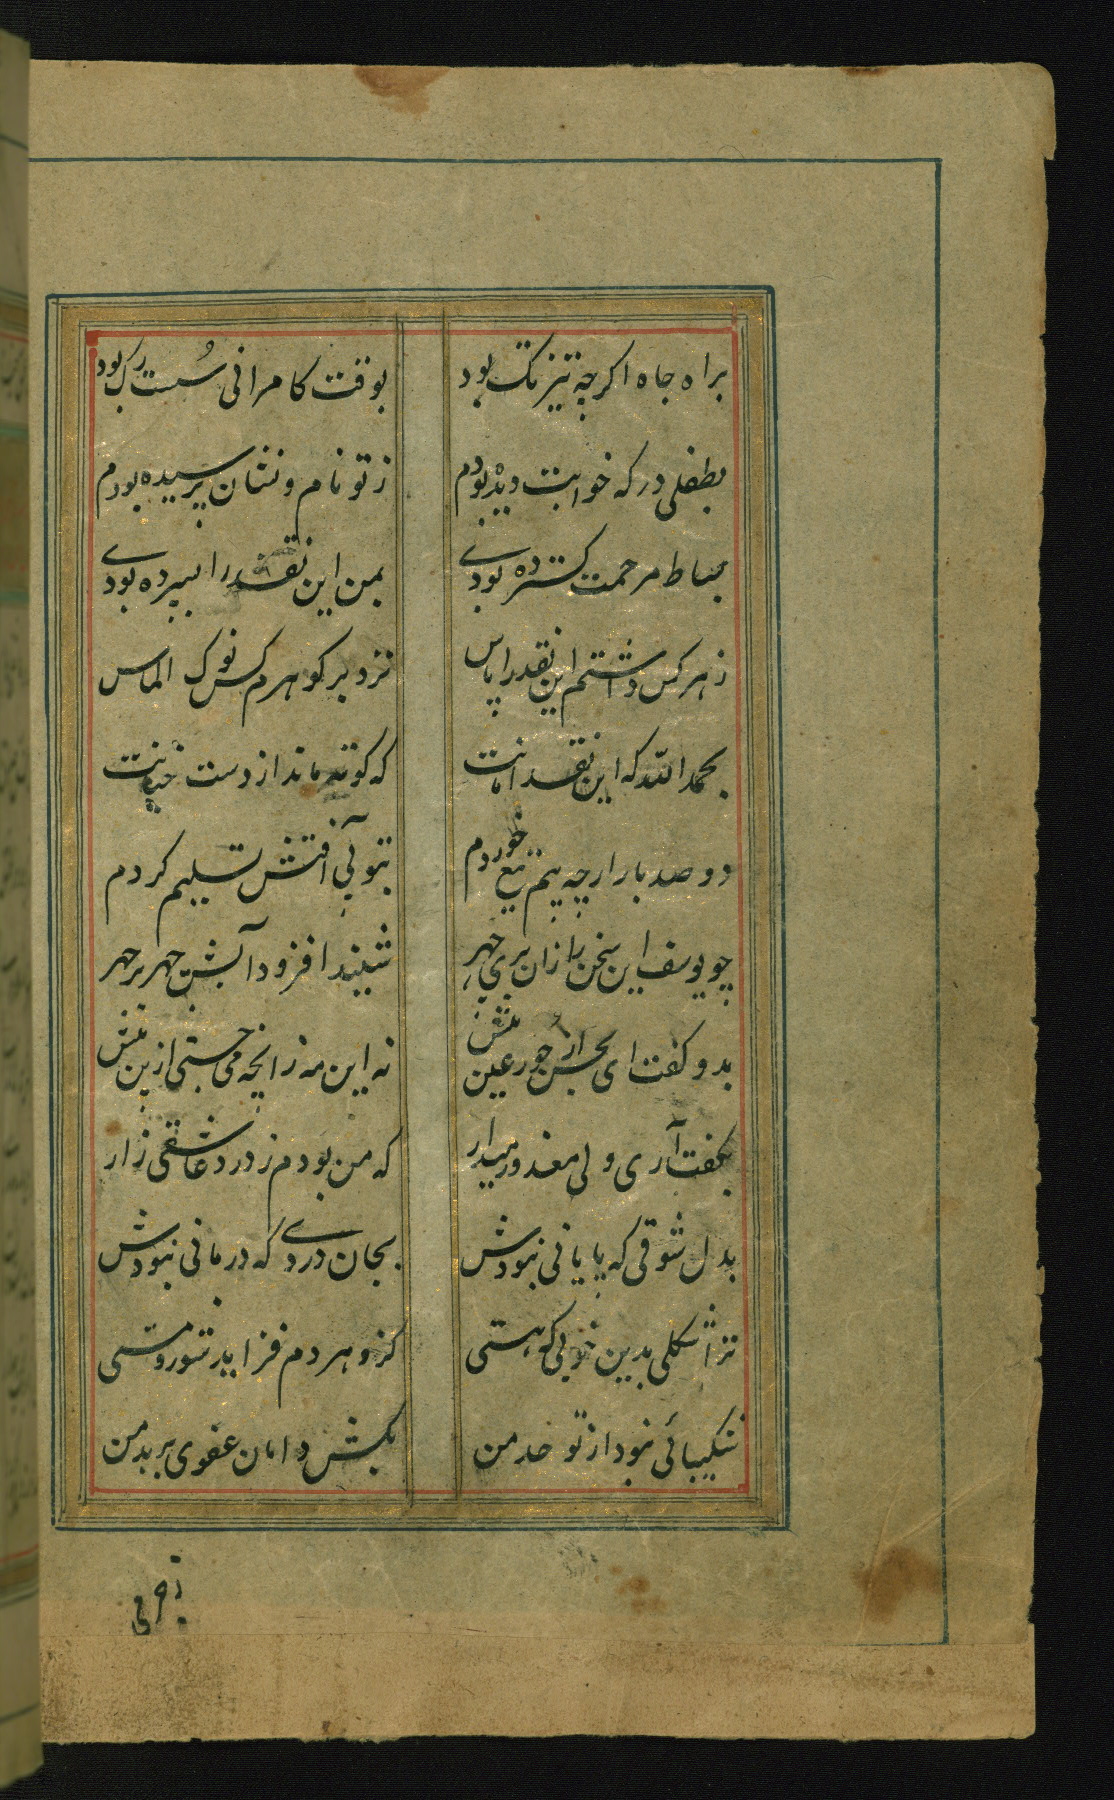 براه جاه اگرچه تیزتک بود بوقت کامرانی سُست رگ بود
بطفلی در که خوابت دیده بودم ز تو نام و نشان پرسیده بودم
بساط مرحمت گسترده بودی بمن این نقد را بسپرده بودی
ز هر کس داشتم این نقد را پاس نزد بر گوهرم کس نوک الماس
بحمدالله که این نقد امانت که کوته ماند از دست خیانت
دو صد بار ار چه بیم تیغ خوردم بتو بی آفتش تسلیم کردم
چو یوسف این سخن را زان پری چهر شنیند افزود آبش مهر بر مهر
بدو گفت ای بحسن از حور عین بیش نه این مه زانچه می جستی ازین پیش
بگفت آری ولی معذور میدار که من بودم ز درد عاشقی زار
بدل شوقی که پایانی نبودش بجان دردی که درمانی نبودش
ترا شکلی بدین خوبی که هستی کزو هر دم فزاید شور و مستی
شکیبائی نبود از تو حد من بکش دامان عفوی بر بد من